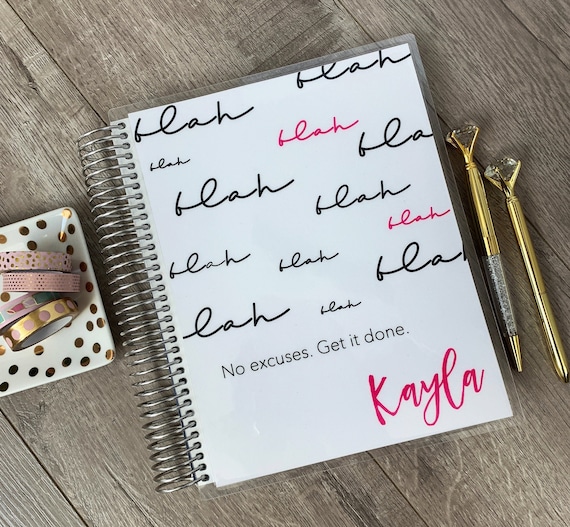 blah
blah
blah
blah
blah
blah
blah
blah
blah
blah
blah
bla
lah
blah
No excuses. Get it done.
Kayla